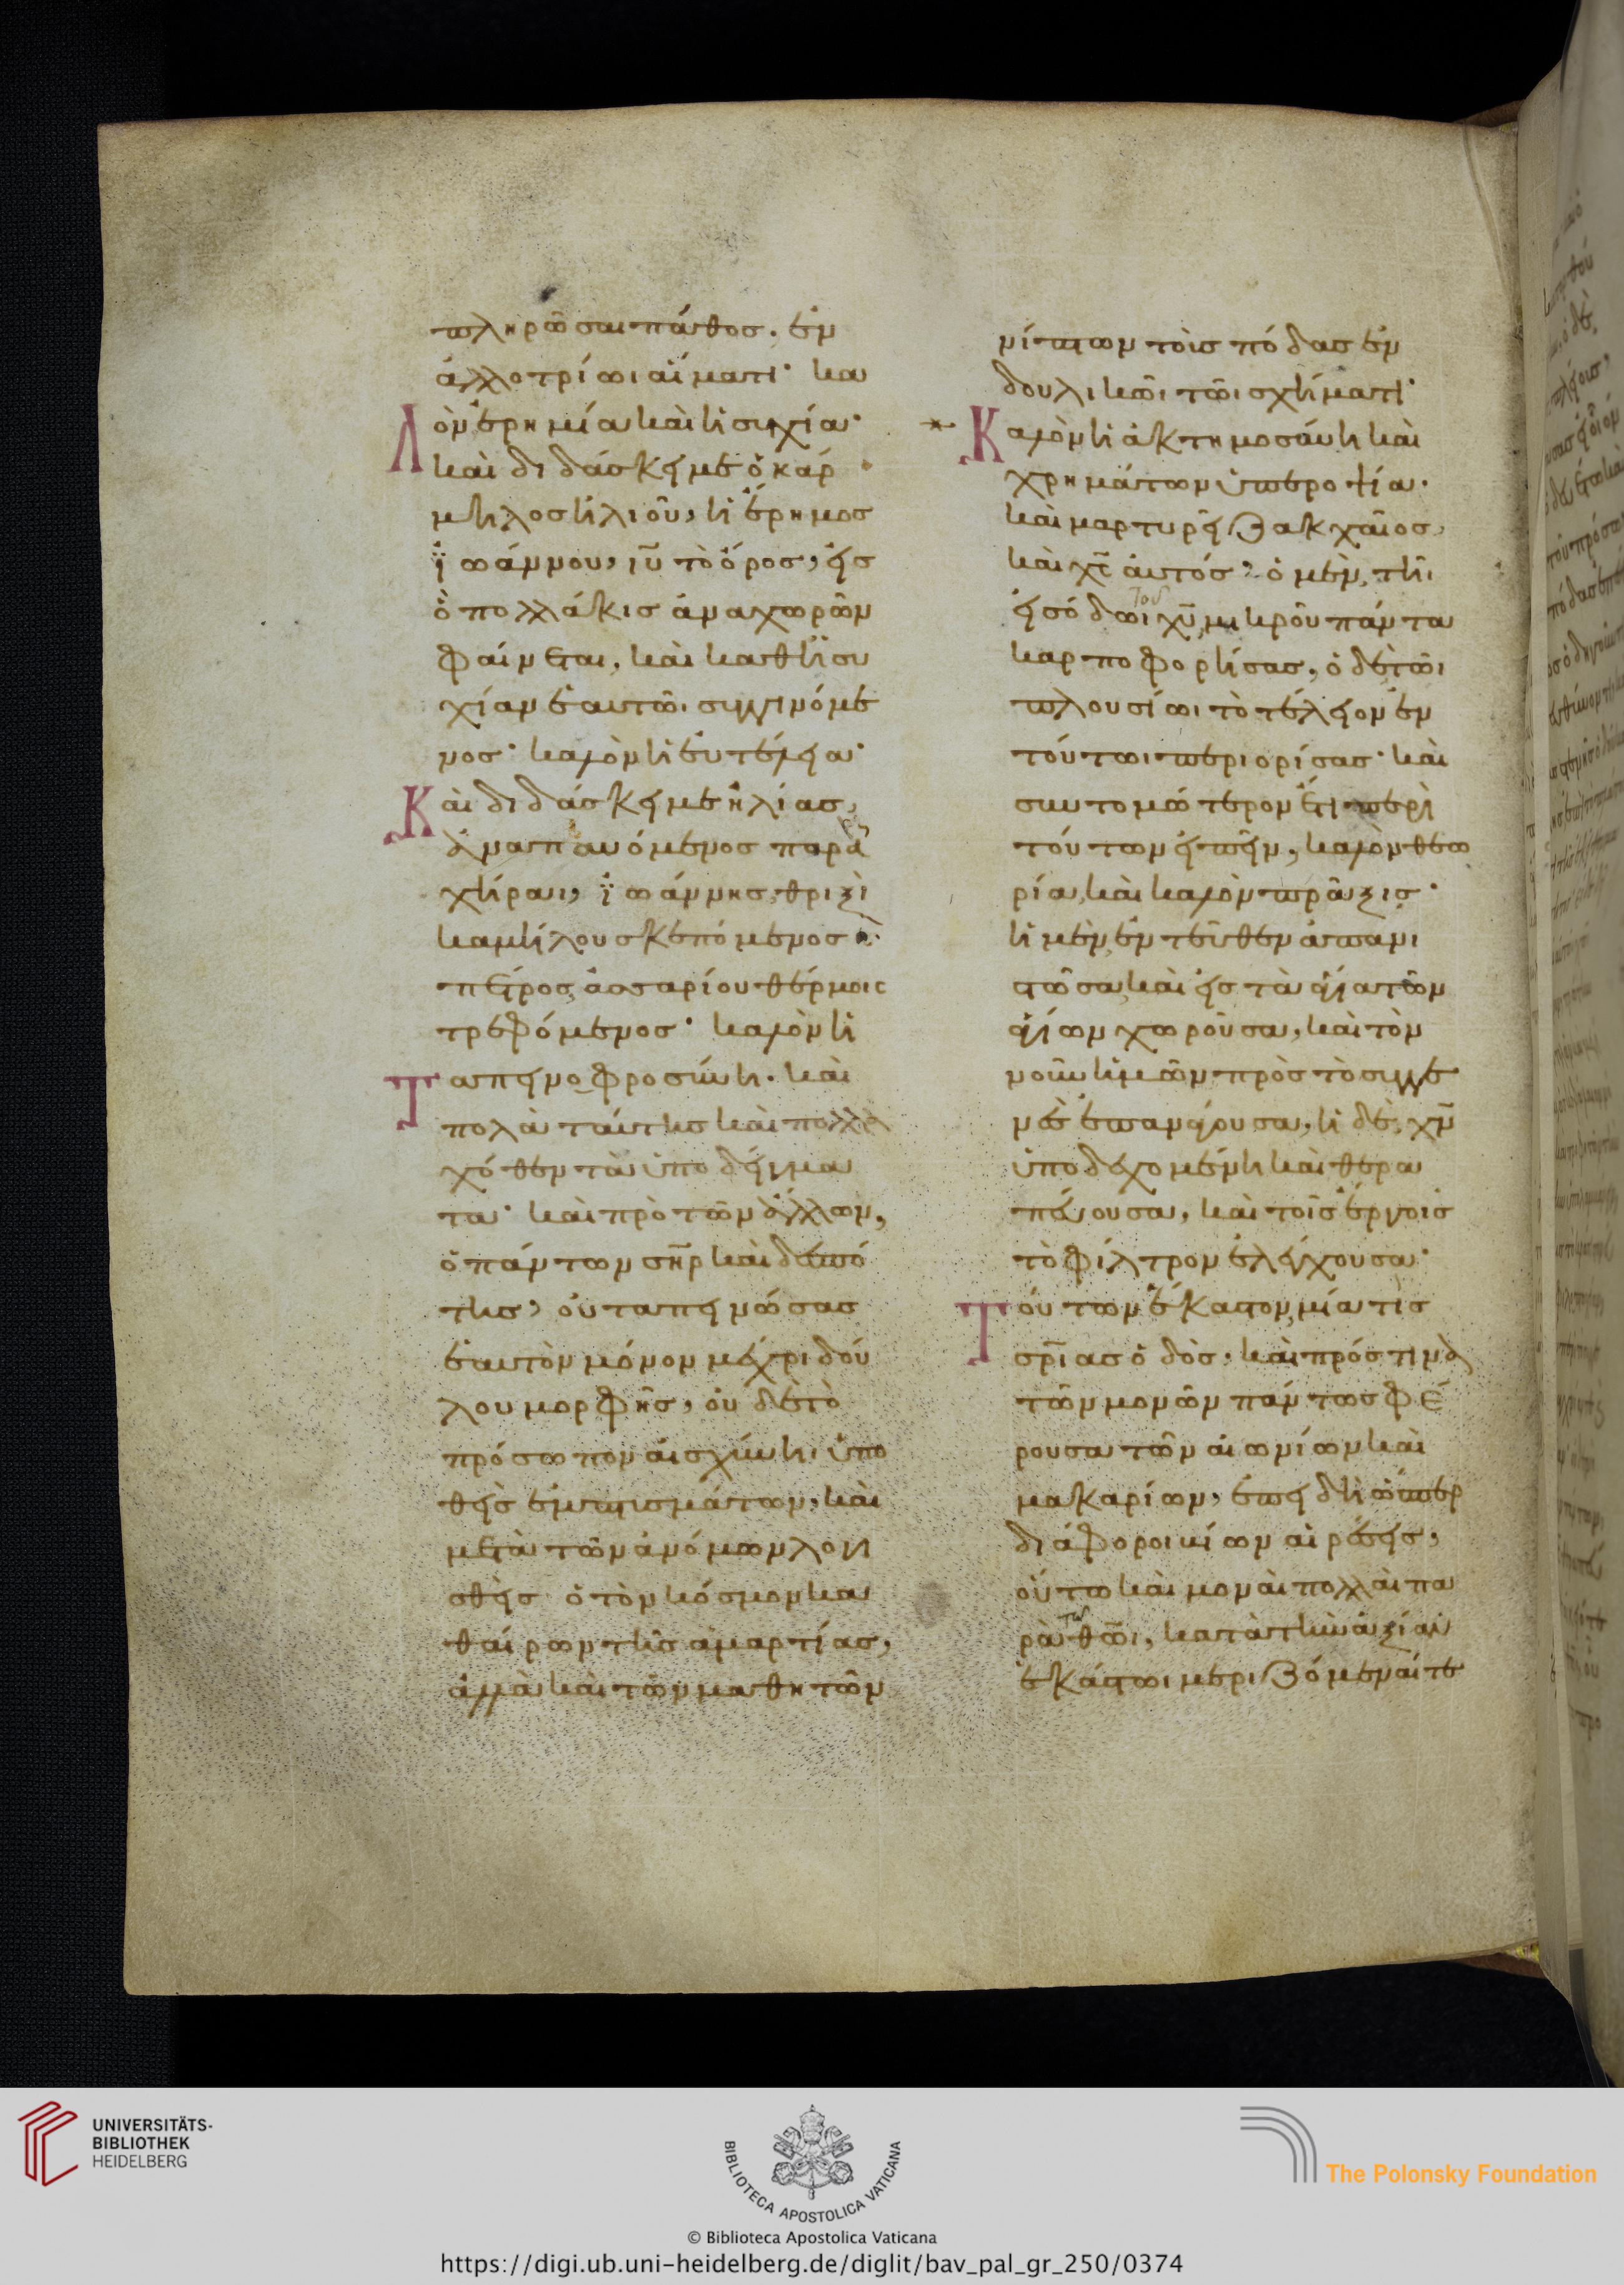 πληρῶσαι πάθος· ἐν
ἀλλοτρίωι αἵματι· κα
λὸν ἐρημία καὶ ἡσυχία·
καὶ διδάσκει με ὁ κάρ
μηλος ἡλιοῦ, ἡ ἔρημος
ϊωάννου, ιυ τὸ ὄρος, εἰς
ὃ πολλάκις ἀναχωρῶν
φαίνεται, καὶ καθησυ
χίαν ἑαυτῶι συγγινόμε
νος· καλὸν ἡ εὐτέλεια·
Καὶ διδάσκει με ἠλίας,
ἀναπαυόμενος παρὰ
χήραι, ϊωάννης, θριξὶ
καμήλου σκεπόμενος
πέτρος, ἀσσαρίου θέρμοις
τρεφόμενος· καλὸν ἡ
Ταπεινοφροσύνη· καὶ
πολλὰ ταύτης καὶ πολλα
χόθεν τὰ ὑποδείγμα
τα· καὶ πρὸ τῶν ἄλλων,
ὁ πάντων σηρ καὶ δεσπό
της, οὐ ταπεινώσας
ἑαυτὸν μόνον μέχρι δού
λου μορφῆς, οὐδὲ τὸ
πρόσωπον αἰσχύνηι ὑπο
θεὶς ἐμπτυσμάτων, καὶ
μετὰ τῶν ἀνόμων λογι
σθεὶς ὁ τὸν κόσμον κα
θαίρων τῆς ἁμαρτίας,
ἀλλὰ καὶ τῶν μαθητῶν
νίπτων τοὶς πόδας ἐν
δουλικῶι τῶι σχήματι·
Καλὸν ἡ ἀκτημοσύνη καὶ
χρημάτων ὑπεροψία·
καὶ μαρτυρεῖ Ζακχαῖος,
καὶ χς αὐτός· ὁ μὲν, τῆι
εἰσόδωι τοῦ χυ μικροῦ πάντα
καρποφορήσας, ὁ δὲ τῶι
πλουσίωι τὸ τέλειον ἐν
τούτωι περιορίσας· καὶ
συντομώτερον ἔτι περὶ
τούτων εἰπεῖν, καλὸν θεω
ρία, καὶ καλὸν πρᾶξις·
ἡ μὲν, ἐντεῦθεν ἀπανι
στῶσα, καὶ εἰς τὰ ἅγια τῶν
ἁγίων χωροῦσα, καὶ τὸν
νοῦν ἡμῶν πρὸς τὸ συγγε
νὲς ἐπανάγουσα, ἡ δὲ, χν
ὑποδεχομένη καὶ θερα
πεύουσα, καὶ τοῖς ἔργοις
τὸ φίλτρον ἐλέγχουσα·
Τούτων ἕκαστον, μία τὶς
σρίας ὁδὸς· καὶ πρός τινα
τῶν μονῶν πάντως φέ
ρουσα τῶν αἰωνίων καὶ
μακαρίων, ἐπειδὴ ὥσπερ
διάφοροι βίων αἱρέσεις,
οὕτω καὶ μοναὶ πολλαὶ πα
ρὰ τῶ θῶι, κατὰ τὴν ἀξίαν
ἑκάστωι μεριζόμεναί τε
UNIVERSITÄTS-
BIBLIOTHEK
HEIDELBERG
BIBLIOTECA APOSTOLICA VATICANA
The Polonsky Foundation
© Biblioteca Apostolica Vaticana
https://digi.ub.uni-heidelberg.de/diglit/bav_pal_gr_250/0374